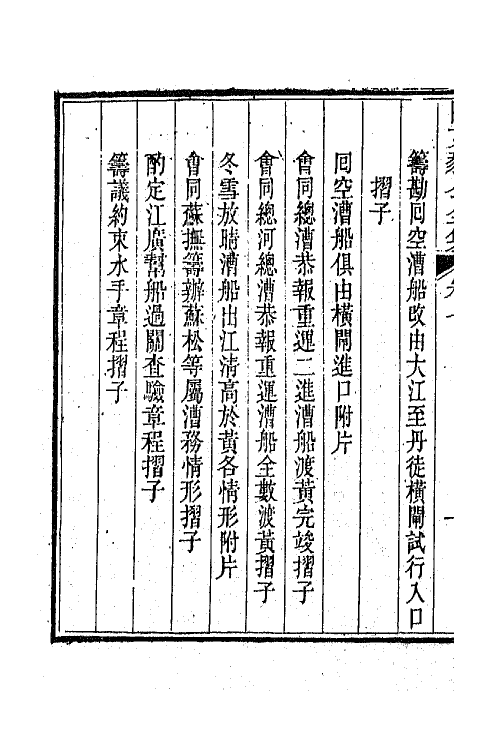 籌勘回空漕船改由大江至丹徒橫閘試行入口
摺子
回空漕船俱由橫閘進口附片
會同總漕恭報重運二進漕船渡黃完竣摺子
會同總河總漕恭報重運漕船全數渡黃摺子
冬雪放晴漕船出江清高於黃各情形附片
會同蘇撫籌辦蘇松等屬漕務情形摺子
酌定江廣幫船過關查驗章程摺子
籌議約束水手章程摺子